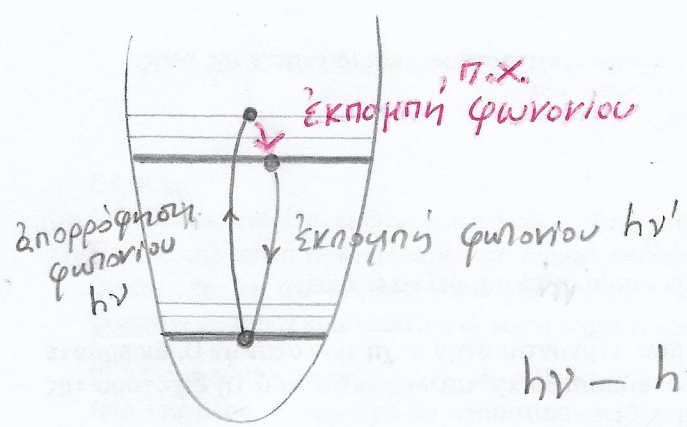 , π.χ.
ἐκπομπή φωνονίου
ἀπορρόφηση
φωτονίου
hν
ἐκπομπή φωτονίου hν'
hν - h